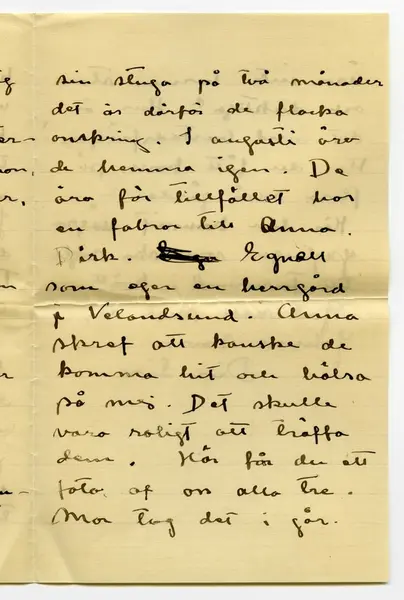 sin stuga på två månader
det är därför de flacka
omkring. I augusti äro
de hemma igen. De
äro för tillfället hos
en fabror till Anna.
Dirk. Egnell
som eger en herrgård
på Velandsund. Anna
skref att kanske de
komma hit och hälsa
på mej. Det skulle
vara roligt att träffa
dem. Här får du ett
foto af oss alla tre.
Mor tog det i går.